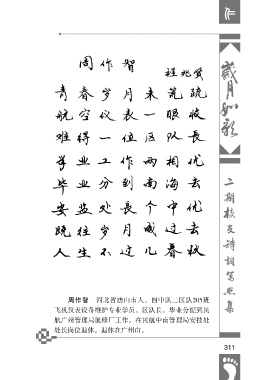 周作智
程兆贤
青春岁月未荒疏
航空仪表一眼收
难得一位区队长
学业工作两相优
毕业分到南海去
安监处长个中优
既往岁月成过去
人生不过几春秋
周作智 河北省唐山市人。四中队二区队205班
飞机仪表设备维护专业学员，区队长。毕业分配到民
航广州管理局航修厂工作。在民航中南管理局安技处
处长岗位退休。退休在广州市。
作
岁月如歌
二期校友诗词写照集
311